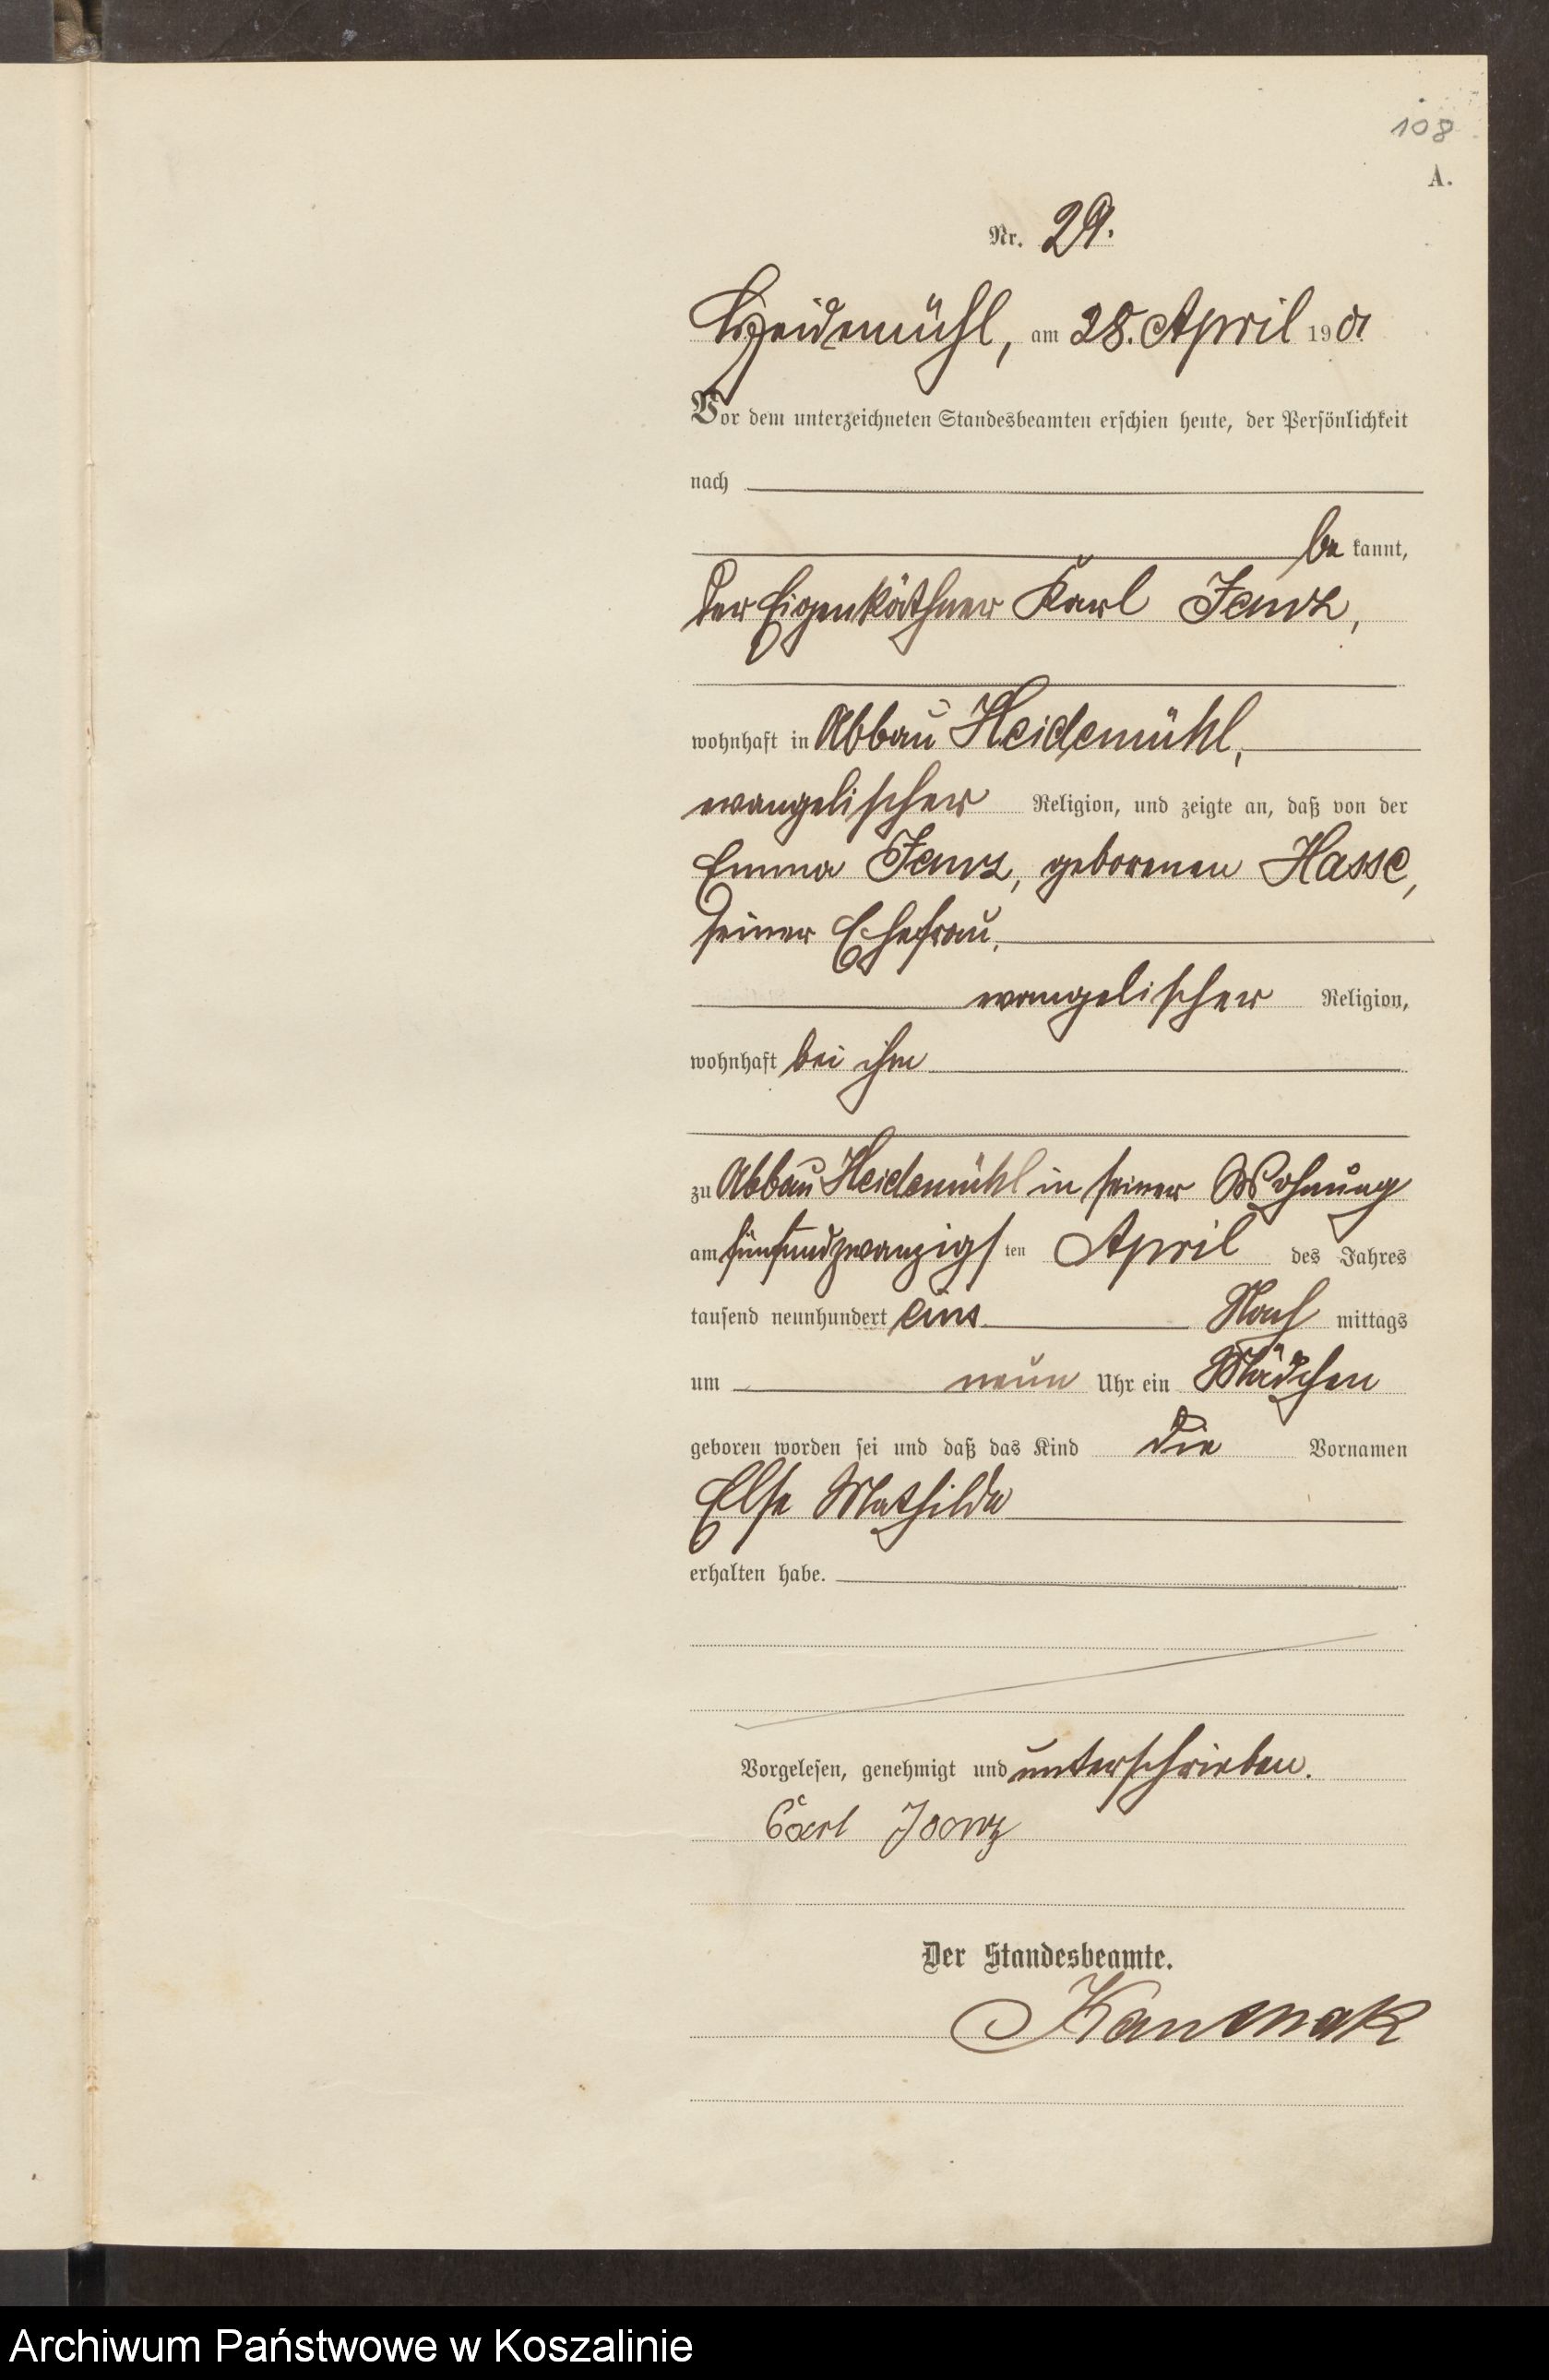 108
A.
Nr. 29.
Heidemühl, am 28. April 1901
Vor dem unterzeichneten Standesbeamten erschien heute, der Persönlichkeit
nach
be kannt,
der Eigenkäthner Karl
wohnhaft in Abbau Heidemühl,
evangelischer Religion, und zeigte an, daß von der
Emma geborenen Hasse,
seiner Ehefrau,
evangelischer Religion,
wohnhaft bei ihm
zu Abbau Heidemühl in seiner Wohnung
am fünfundzwanzigsten April des Jahres
tausend neunhundert eins Nach mittags
um neun Uhr ein Mädchen
geboren worden sei und daß das Kind die Vornamen
Else Mathilde
erhalten habe.
Vorgelesen, genehmigt und unterschrieben.
Carl
Der Standesbeamte.
Archiwum Państwowe w Koszalinie